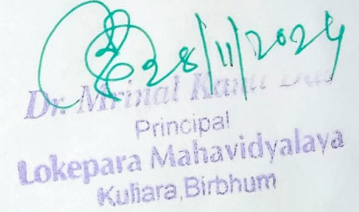 28/11/2024
Dr. Mrinal Kanti Das
Principal
Lokepara Mahavidyalaya
Kuliara,Birbhum